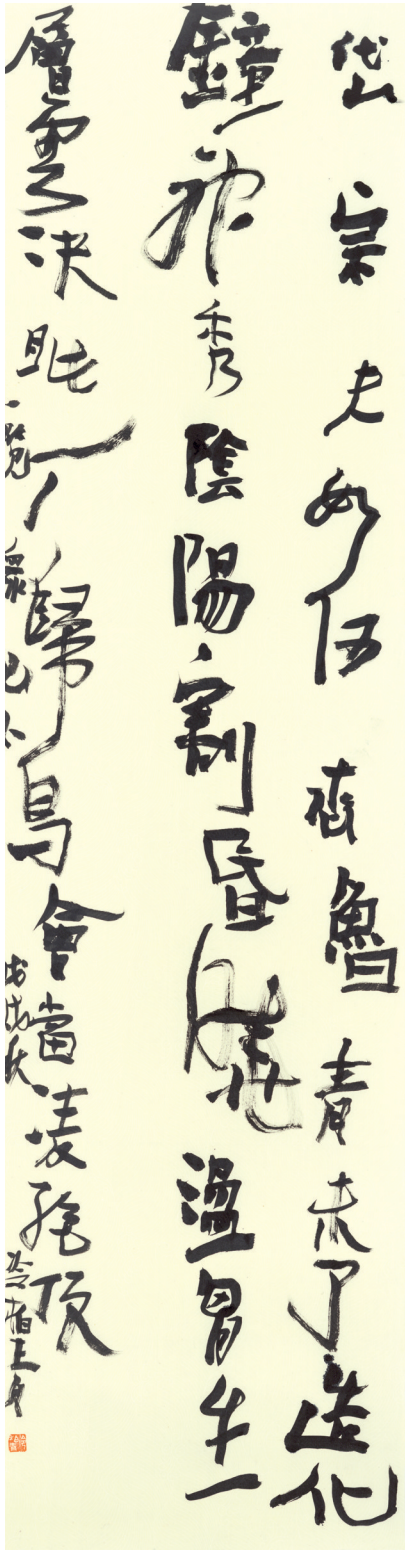 岱宗夫如何齊魯青未了造化
鐘神秀陰陽割昏曉盪胷生
層雲決眥入歸鳥會當凌絕頂
一覽眾山小 戊戌秋